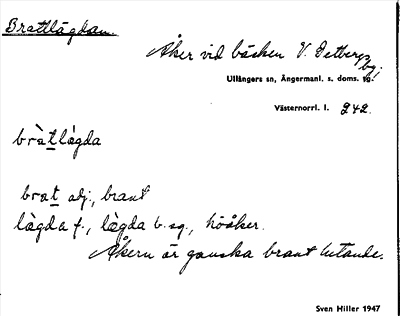 Brattlägdan
Åker vid bäcken V. Detbergs
by;
Ullångers sn, Ångermanl. s. doms. sg.
Västernorrl. l. 242.
bràtlägda
brat adj., brant
lägda f., lägda b. sg., höåker.
Åkern är ganska brant lutande.
Sven Hiller 1947